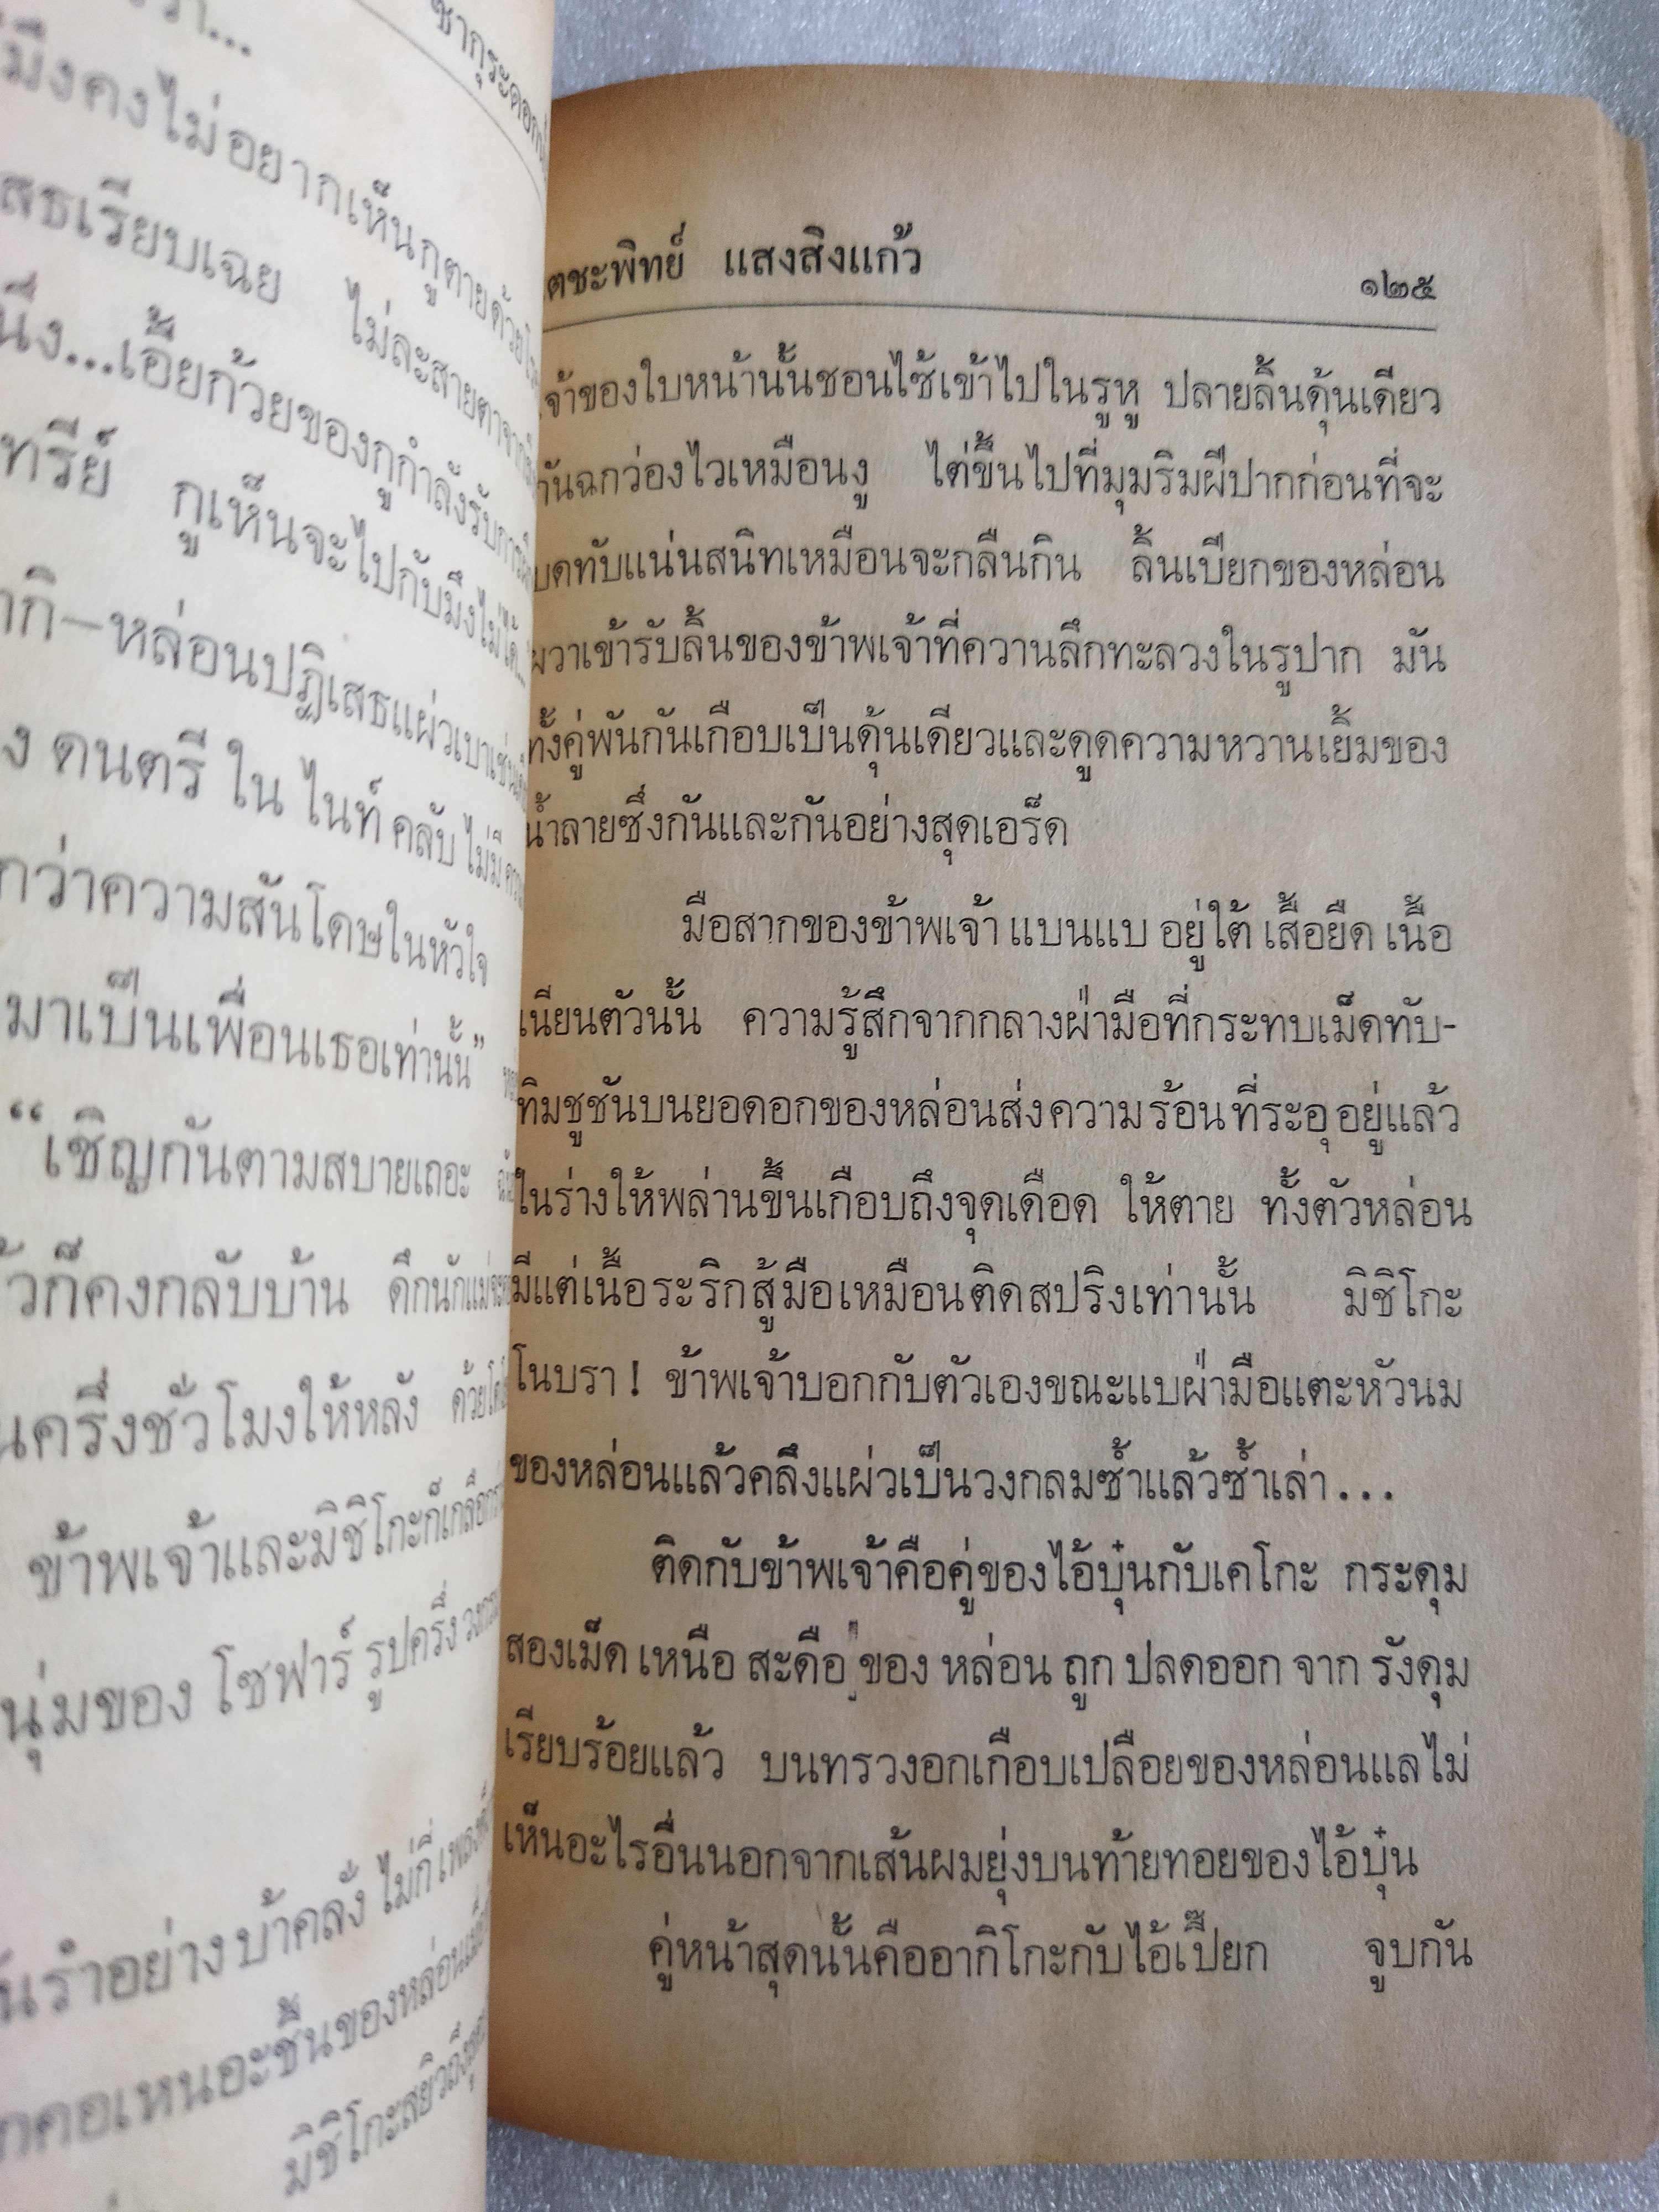 ซากุระดอก
มึงคงไม่อยากเห็นกูตายด้วย
สธเรียบเฉย ไม่ละสายตาจาก
...เอี้ยก้วยของกูกำลังรับการ
ทรีย์ กูเห็นจะไปกับมึงไม่ได้...
กิ—หล่อนปฏิเสธแผ่วเบาเช่น
ง ดนตรี ใน ไนท์ คลับ ไม่มี
กว่าความสันโดษในหัวใจ
มาเป็นเพื่อนเธอเท่านั้น”
“เชิญกันตามสบายเถอะ
วก็คงกลับบ้าน ดึกนักแม่จะ
นครึ่งชั่วโมงให้หลัง
ข้าพเจ้าและมิชิโกะก็เกลือก
นุ่มของ โซฟาร์ รูปครึ่ง
นรำอย่างบ้าคลั่ง ไม่กี่เพลง
กคอเหนอะชื้นของหล่อน
มิชิโกะสยิวถึง
ตชะพิทย์ แสงสิงแก้ว
๑๒๕
จ้าของใบหน้านั้นชอนไซ้เข้าไปในรูหู ปลายลิ้นดุ้นเดียว
กันฉกว่องไวเหมือนงู ไต่ขึ้นไปที่มุมริมฝีปากก่อนที่จะ
บดทับแน่นสนิทเหมือนจะกลืนกิน ลิ้นเปียกของหล่อน
ผวาเข้ารับลิ้นของข้าพเจ้าที่ควานลึกทะลวงในรูปาก มัน
ทั้งคู่พันกันเกือบเป็นดุ้นเดียวและดูดความหวานเยิ้มของ
น้ำลายซึ่งกันและกันอย่างสุดเอร็ด
มือสากของข้าพเจ้า แบนแบ อยู่ใต้ เสื้อยืด เนื้อ
เนียนตัวนั้น ความรู้สึกจากกลางฝ่ามือที่กระทบเม็ดทับ-
ทิมชูชันบนยอดอกของหล่อนส่งความร้อนที่ระอุอยู่แล้ว
ในร่างให้พล่านขึ้นเกือบถึงจุดเดือด ให้ตาย ทั้งตัวหล่อน
มีแต่เนื้อระริกสู้มือเหมือนติดสปริงเท่านั้น มิชิโกะ
โนบรา ! ข้าพเจ้าบอกกับตัวเองขณะแบฝ่ามือแตะหัวนม
ของหล่อนแล้วคลึงแผ่วเป็นวงกลมซ้ำแล้วซ้ำเล่า...
ติดกับข้าพเจ้าคือคู่ของไอ้บุ๋นกับเคโกะ กระดุม
สองเม็ด เหนือ สะดือ ของ หล่อน ถูก ปลดออก จาก รังดุม
เรียบร้อยแล้ว บนทรวงอกเกือบเปลือยของหล่อนแลไม่
เห็นอะไรอื่นนอกจากเส้นผมยุ่งบนท้ายทอยของไอ้บุ๋น
คู่หน้าสุดนั้นคืออากิโกะกับไอ้เปี๊ยก จูบกัน